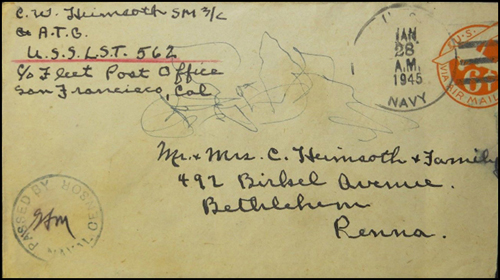 C. W. Heimsoth SM 3/C
& A.T.B.
U.S.S. L.S.T. 562
c/o Fleet Post Office
San Francisco, Cal
U.S.
JAN
28
A.M.
1945
NAVY
U.S.
6¢
VIA AIR MAIL
Mr. & Mrs. C. Heimsoth & Family
492 Birkel Avenue.
Bethlehem
Penna.
PASSED BY
NAVAL CENSOR